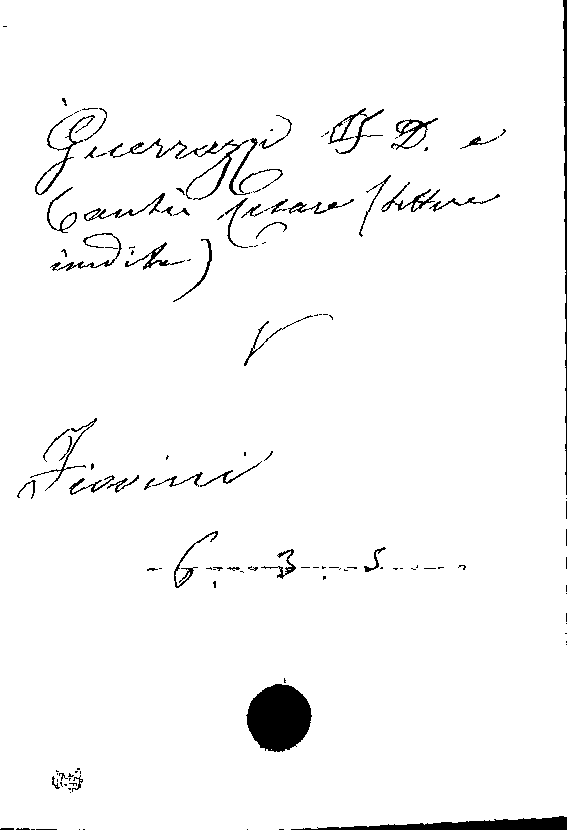 Guerrazzi F D. e
Cantù Cesare (lettere
inedite)
V
Fiorini
6. 3. 5